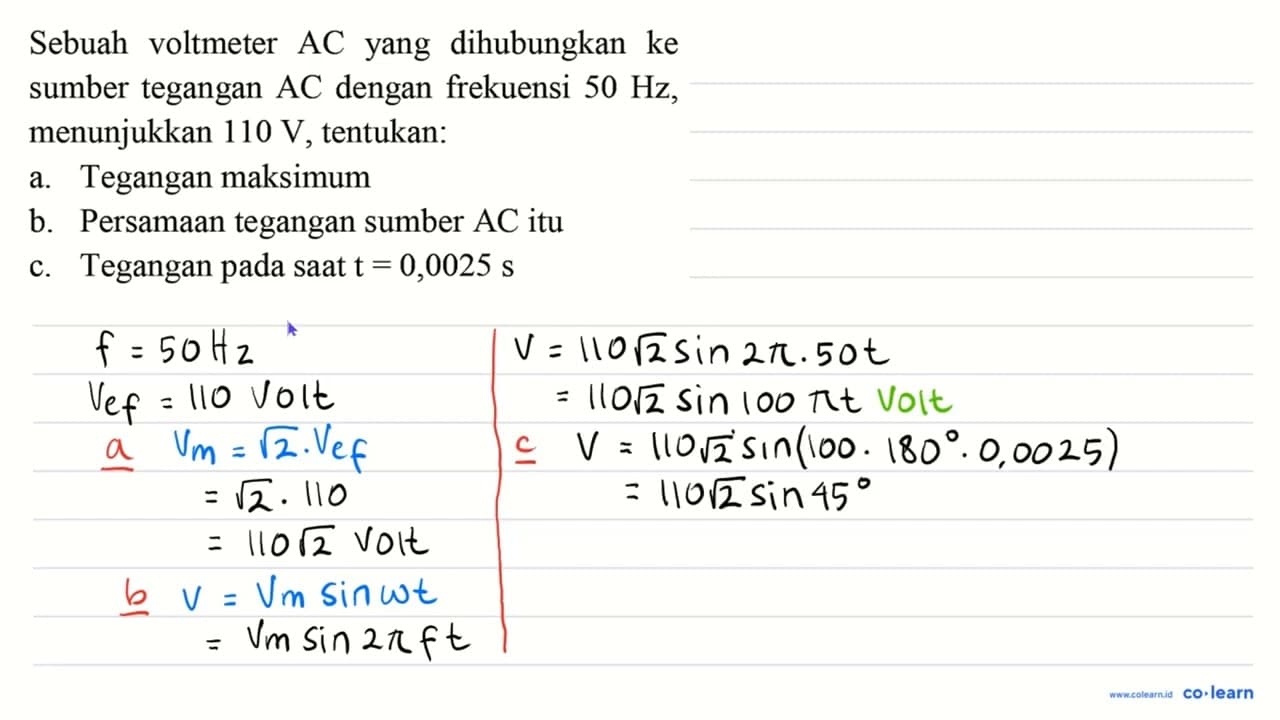 Sebuah voltmeter AC yang dihubungkan ke
sumber tegangan AC dengan frekuensi 50 Hz,
menunjukkan 110 V, tentukan:
a. Tegangan maksimum
b. Persamaan tegangan sumber AC itu
c. Tegangan pada saat t = 0,0025 s
f = 50 Hz
Vef = 110 Volt
a Vm = √2 . Vef
= √2 . 110
= 110√2 Volt
b V = Vm sin ωt
= Vm sin 2π f t
V = 110√2 sin 2π . 50t
= 110√2 sin 100 πt Volt
c V = 110√2 sin(100 . 180° . 0,0025)
= 110√2 sin 45°
www.colearn.id co·learn